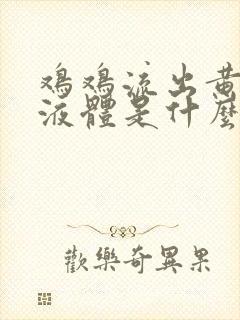 鸡鸡流出黄
液體是什麼
歡樂奇異果